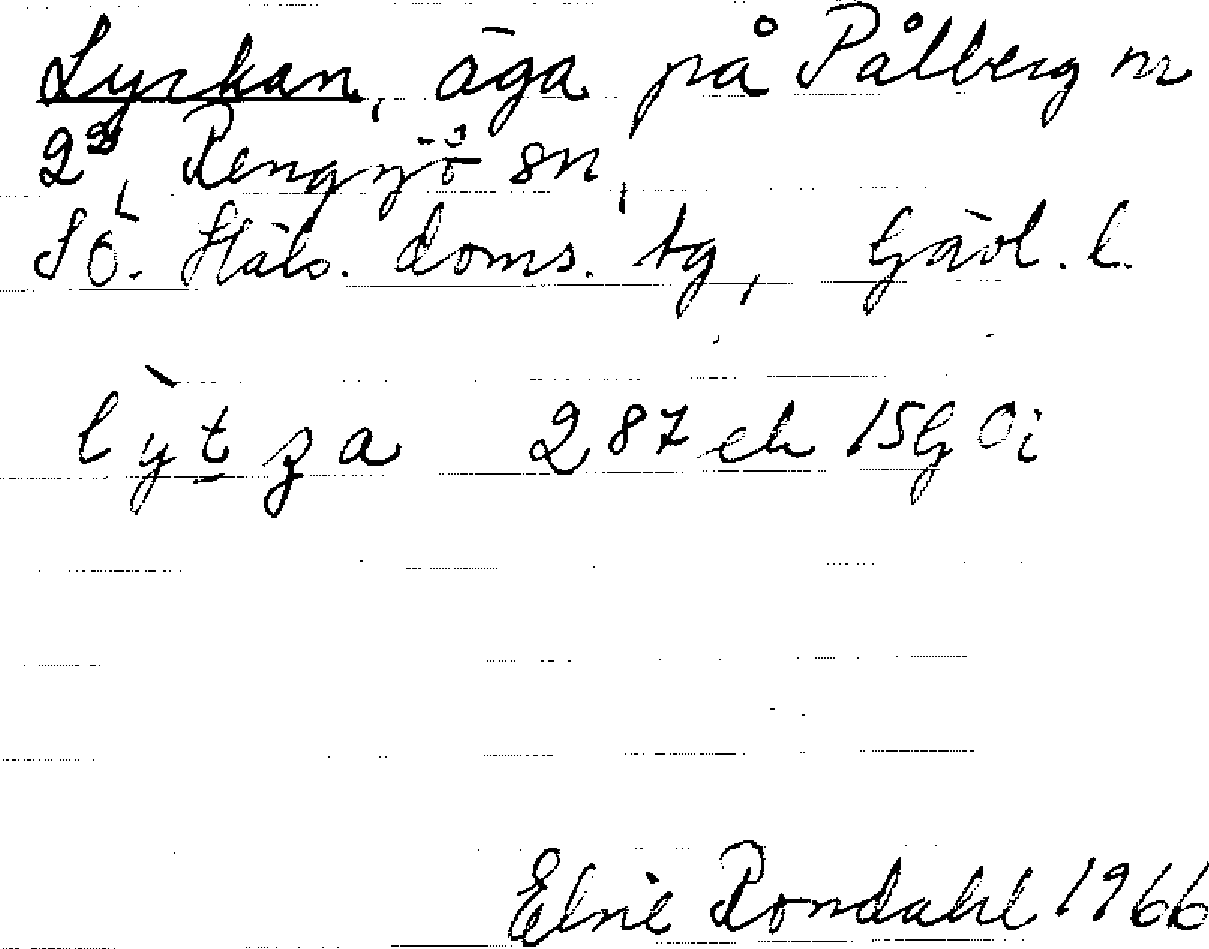 Lyrkan, äga på Pålberg nr
2³, Rengsjö sn,
Sö. Häls. doms. tg, Gävl. l.
lỳt̲ʒa 287 ek 15G 0i
Elvie Rondahl 1966